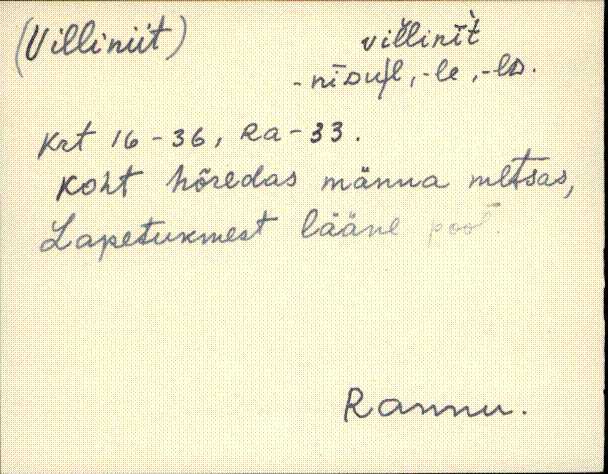 (Villiniit) villinīt̀
-nīdul, -le, -ld.
Krt 16-36, Ra-33.
Koht hõredas männa metsas,
Lapetukmest lääne pool
Rannu.